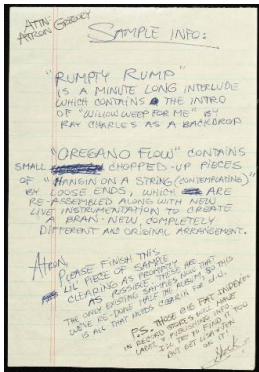 ATTN:
ATRON GREGORY
SAMPLE INFO:
"RUMPTY RUMP"
IS A MINUTE LONG INTERLUDE
WHICH CONTAINS THE INTRO
OF "WILLOW WEEP FOR ME" BY
RAY CHARLES AS A BACKDROP
"OREGANO FLOW" CONTAINS
SMALL CHOPPED-UP PIECES
OF "HANGIN ON A STRING (CONTEMPLATING)"
BY LOOSE ENDS, WHICH ARE
RE-ASSEMBLED ALONG WITH NEW
LIVE INSTRUMENTATION TO CREATE
A BRAN-NEW, COMPLETELY
DIFFERENT AND ORIGINAL ARRANGEMENT.
ATRON,
PLEASE FINISH THIS
LIL' PIECE OF SAMPLE
CLEARING AS PROMPTLY
AS POSSIBLE. THESE ARE
THE ONLY EXISTING SAMPLES NOW THAT
WE'VE RE-DONE HALF THE ALBUM, SO THIS
IS ALL THAT NEEDS CLEARIN FOR D.U.
P.S. THOSE BIG FAT INDEXES
IN RECORD STORES WILL HAVE
LABEL & PUBLISHING INFO.
I'LL TRY TO FIND IT TOO
BUT GET LISA
ON IT!
Shock